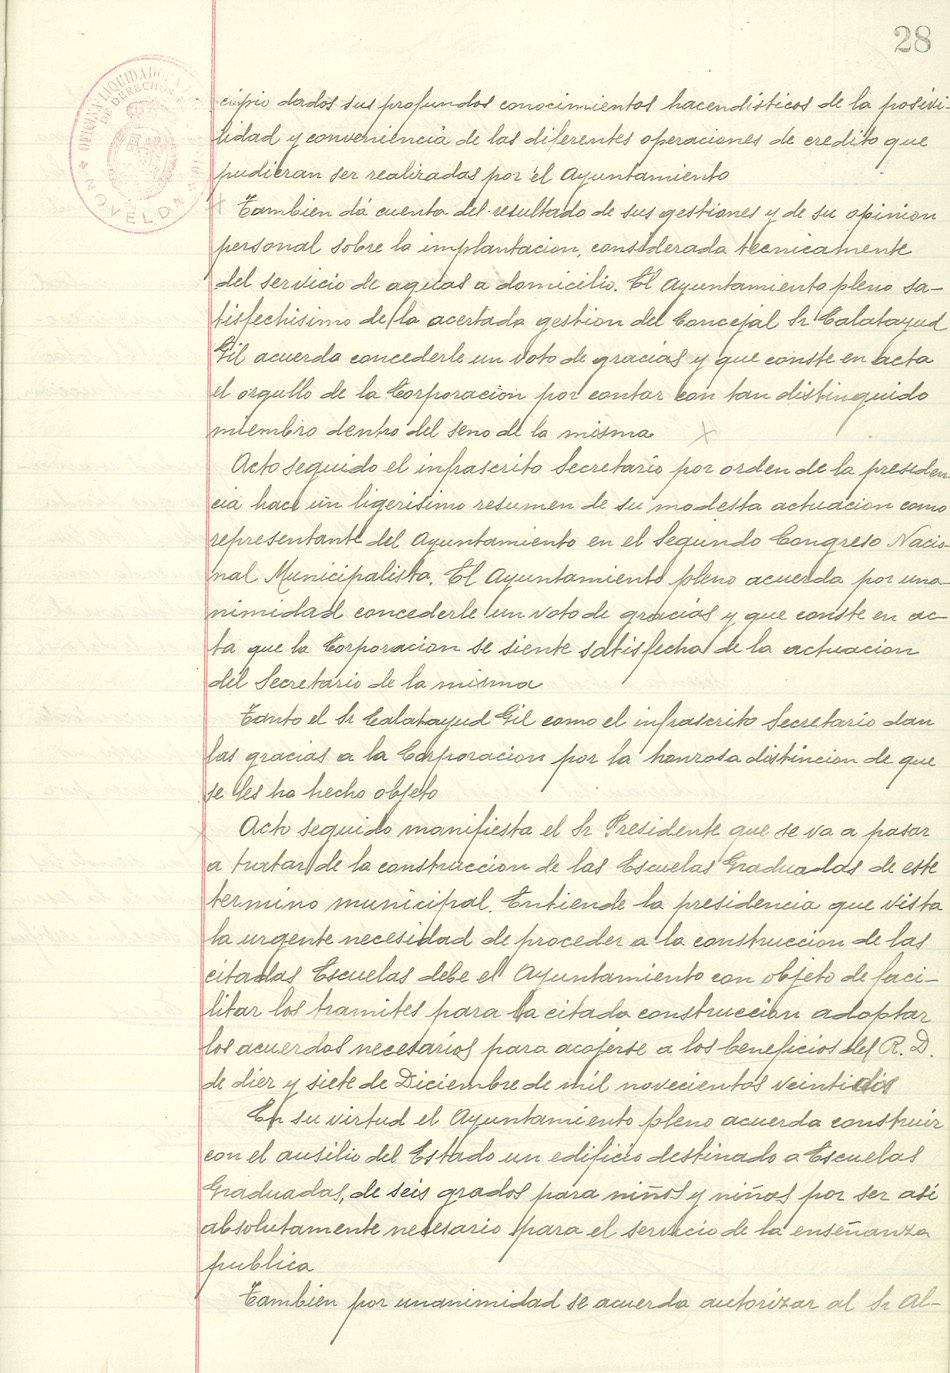 28
OFICINA LIQUIDADORA
DE DERECHOS
NOVELDA
cipio dados sus profundos conocimientos hacendisticos de la posivi-
lidad y conveniencia de las diferentes operaciones de credito que
pudieran ser realizadas por el Ayuntamiento
Tambien dá cuenta del resultado de sus gestiones y de su opinion
personal sobre la implantacion, considerada tecnicamente
del servicio de aguas a domicilio. El Ayuntamiento pleno sa-
tisfechisimo de la acertada gestion del Concejal Sr Calatayud
Gil acuerda concederle un voto de gracias y que conste en acta
el orgullo de la Corporacion por contar con tan distinguido
miembro dentro del seno de la misma
Acto seguido el infrascrito Secretario por orden de la presiden
cia hace un ligerisimo resumen de su modesta actuacion como
representante del Ayuntamiento en el Segundo Congreso Nacio-
nal Municipalista. El Ayuntamiento pleno acuerda por una-
nimidad concederle un voto de gracias y que conste en ac-
ta que la Corporacion se siente satisfecha de la actuacion
del Secretario de la misma
Tanto el Sr Calatayud Gil como el infrascrito Secretario dan
las gracias a la Corporacion por la honrosa distincion de que
se les ha hecho objeto
Acto seguido manifiesta el Sr Presidente que se va a pasar
a tratar de la construccion de las Escuelas Graduadas de este
termino municipal. Entiende la presidencia que vista
la urgente necesidad de proceder a la construccion de las
citadas Escuelas debe el Ayuntamiento con objeto de faci-
litar los tramites para la citada construccion adoptar
los acuerdos necesarios para acojerse a los beneficios del R. D.
de diez y siete de Diciembre de mil novecientos veintidós
En su virtud el Ayuntamiento pleno acuerda construir
con el ausilio del Estado un edificio destinado a Escuelas
Graduadas, de seis grados para niños y niñas por ser asi
absolutamente necesario para el servicio de la enseñanza
publica
Tambien por unanimidad se acuerda autorizar al Sr Al-